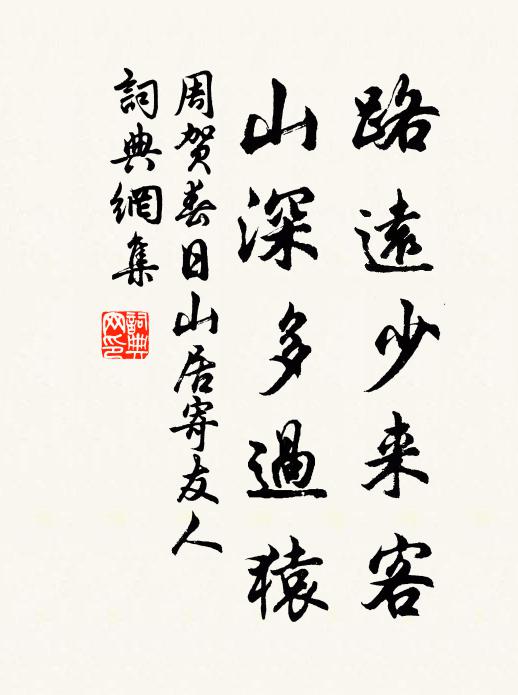 路遠少来客
山深多過猿
周贺春日山居寄友人
詞典網集
詞典網印